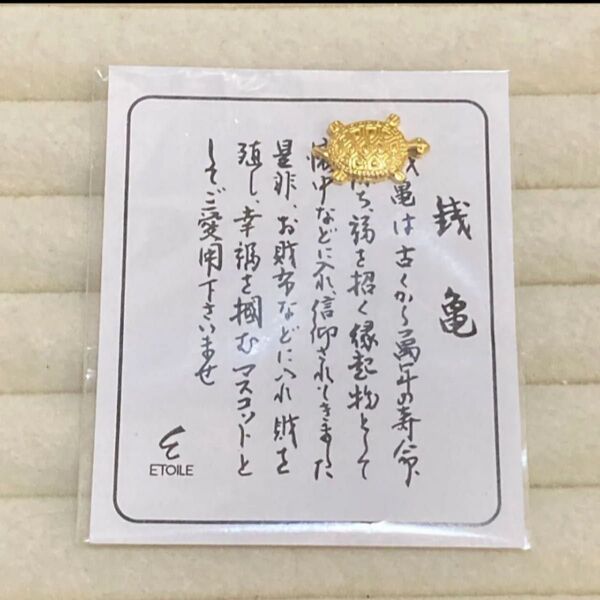 銭亀
亀は古くから萬年の寿命
ち、福を招く縁起物として
懐中などに入れ、信仰されてきました
是非、お財布などに入れ財を
殖し、幸福を掴むマスコットと
してご愛用下さいませ
ETOILE